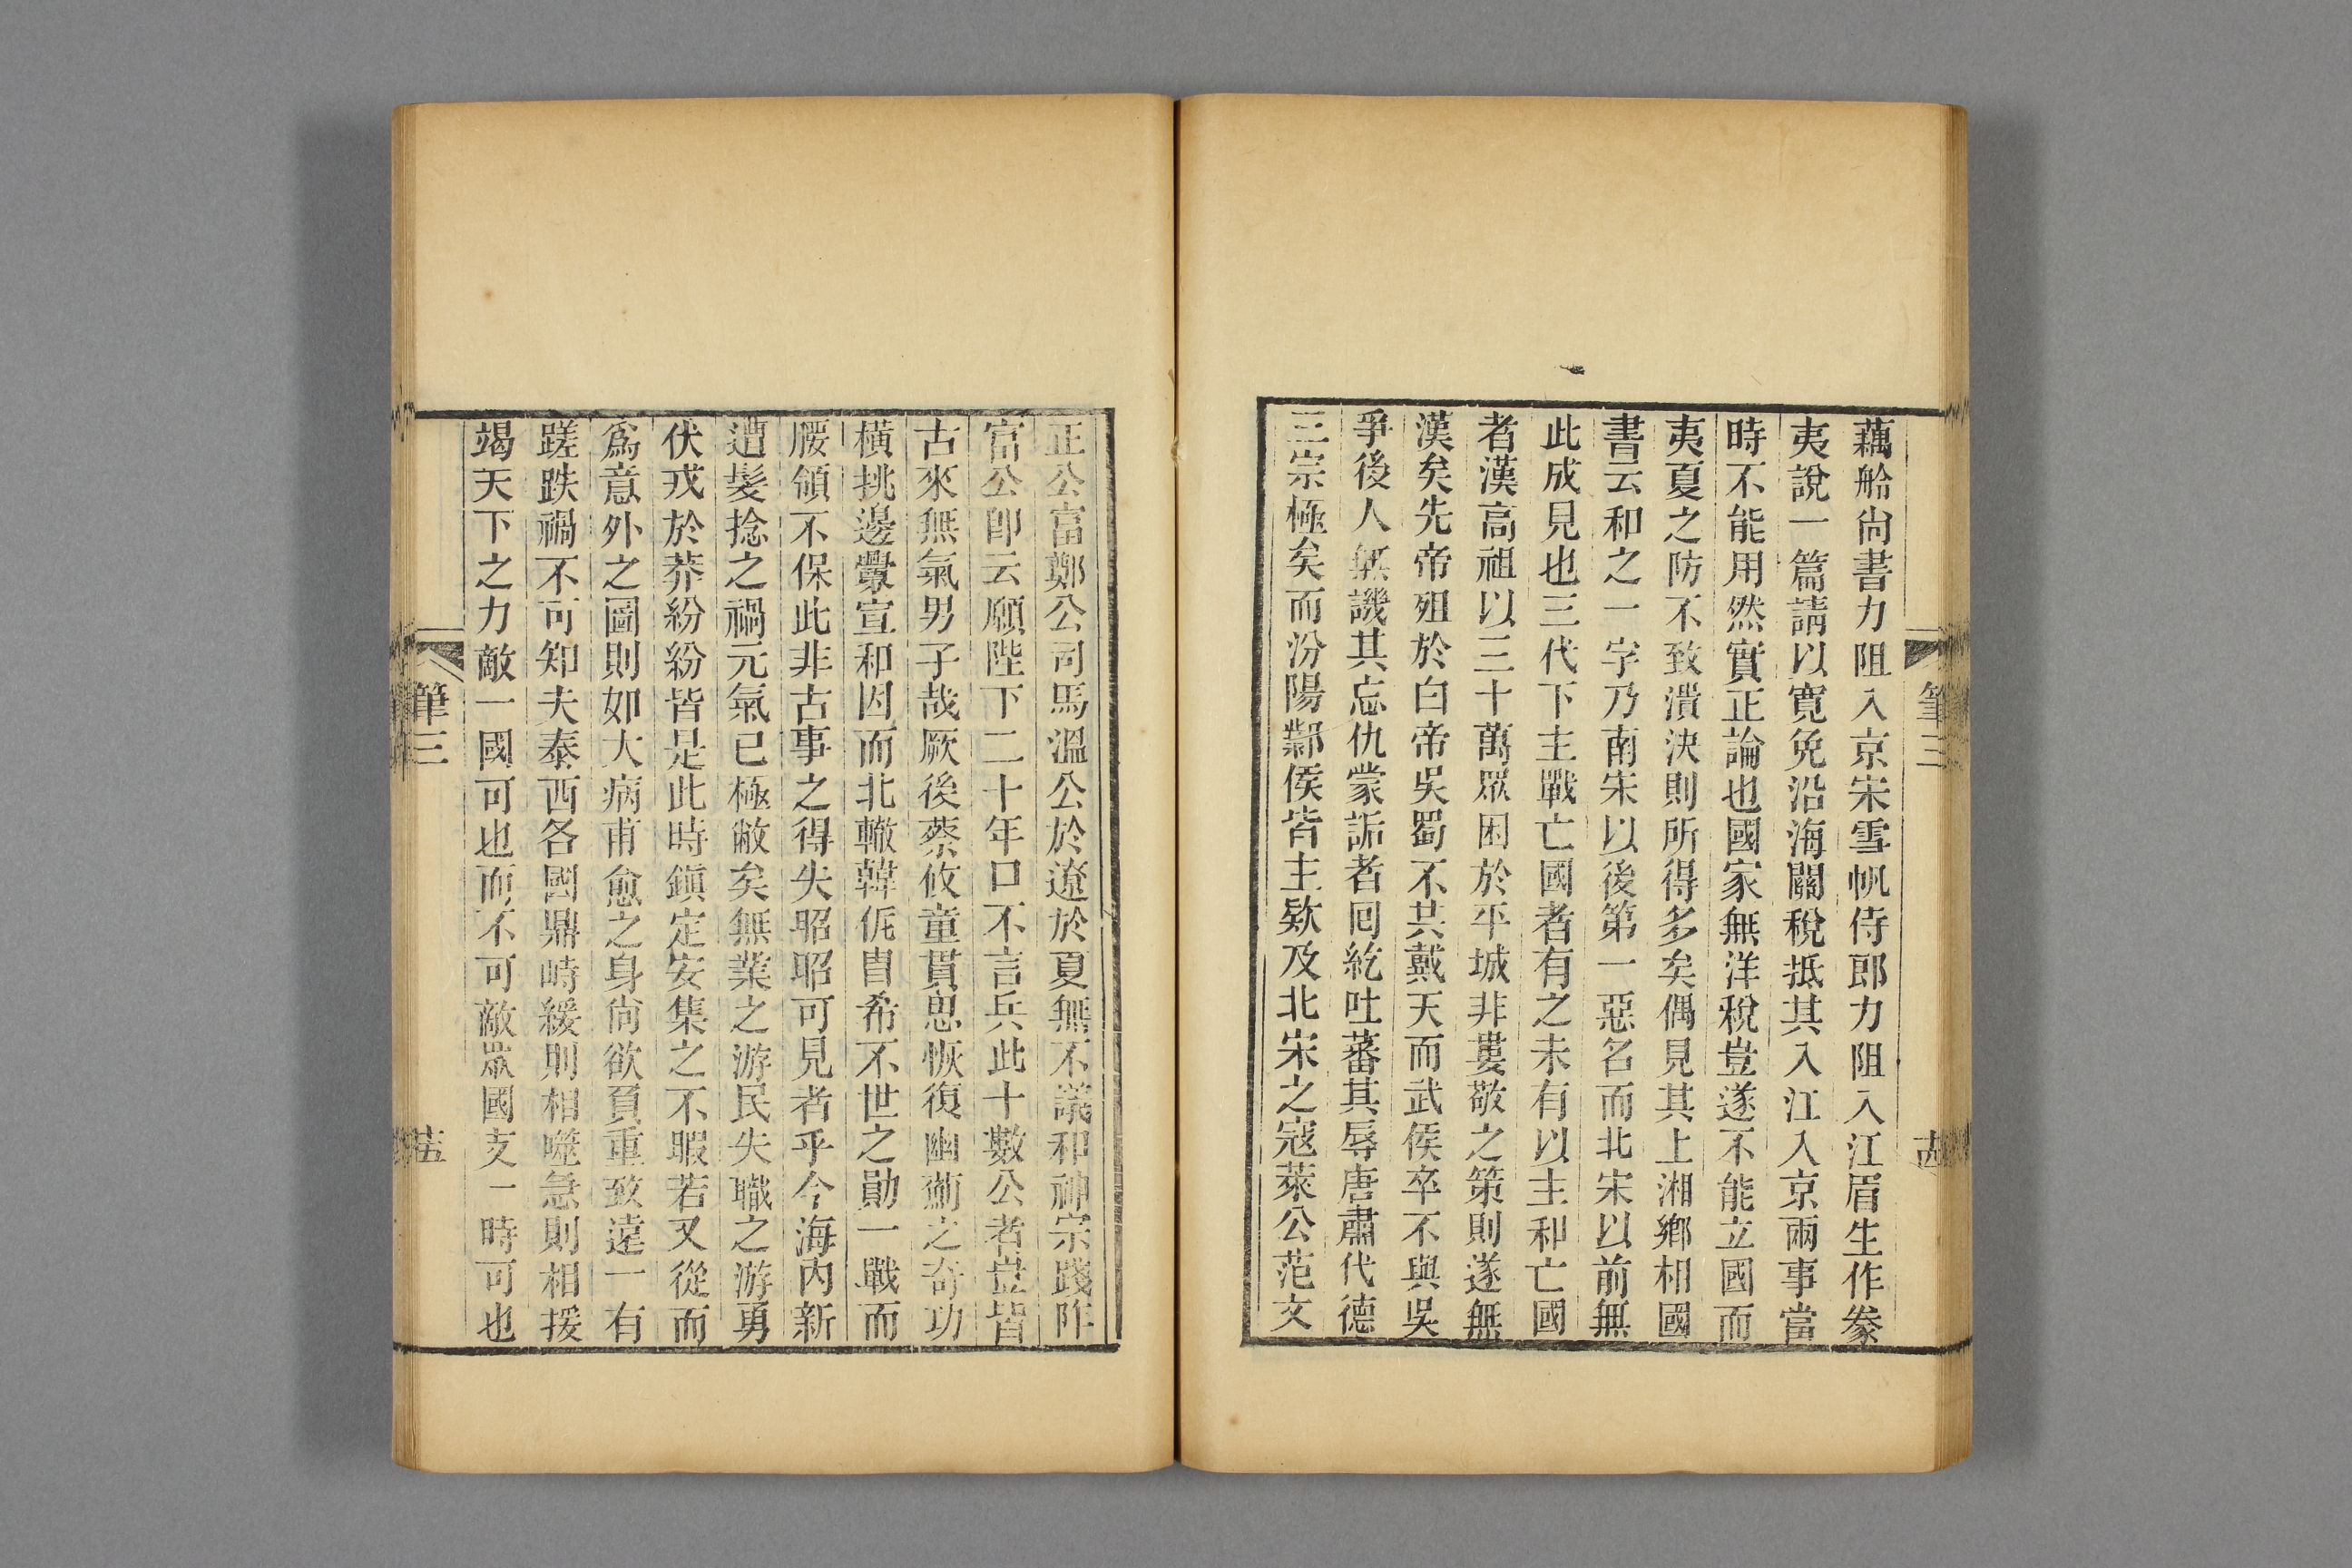 筆三
十四
藕舲尚書力阻入京宋雪帆侍郎力阻入江眉生作豢
夷說一篇請以寬免沿海關稅抵其入江入京兩事當
時不能用然實正論也國家無洋稅豈遂不能立國而
夷夏之防不致潰決則所得多矣偶見其上湘鄉相國
書云和之一字乃南宋以後第一惡名而北宋以前無
此成見也三代下主戰亡國者有之未有以主和亡國
者漢高祖以三十萬眾困於平城非婁敬之策則遂無
漢矣先帝殂於白帝吳蜀不共戴天而武侯卒不與吳
爭後人無譏其忘仇蒙詬者囘紇吐蕃其辱唐肅代德
三宗極矣而汾陽鄴侯皆主欵及北宋之寇萊公范文
正公富鄭公司馬溫公於遼於夏無不議和神宗踐阼
富公卽云願陛下二十年口不言兵此十數公者豈皆
古來無氣男子哉厥後蔡攸童貫思恢復幽薊之奇功
橫挑邊釁宣和因而北轍韓侂冑希不世之勛一戰而
腰領不保此非古事之得失昭昭可見者乎今海內新
遭髮捻之禍元氣已極敝矣無業之游民失職之游勇
伏戎於莽紛紛皆是此時鎭定安集之不暇若又從而
爲意外之圖則如大病甫愈之身尙欲負重致遠一有
蹉跌禍不可知夫泰西各國鼎峙緩則相噬急則相援
竭天下之力敵一國可也而不可敵眾國支一時可也
筆三
十五